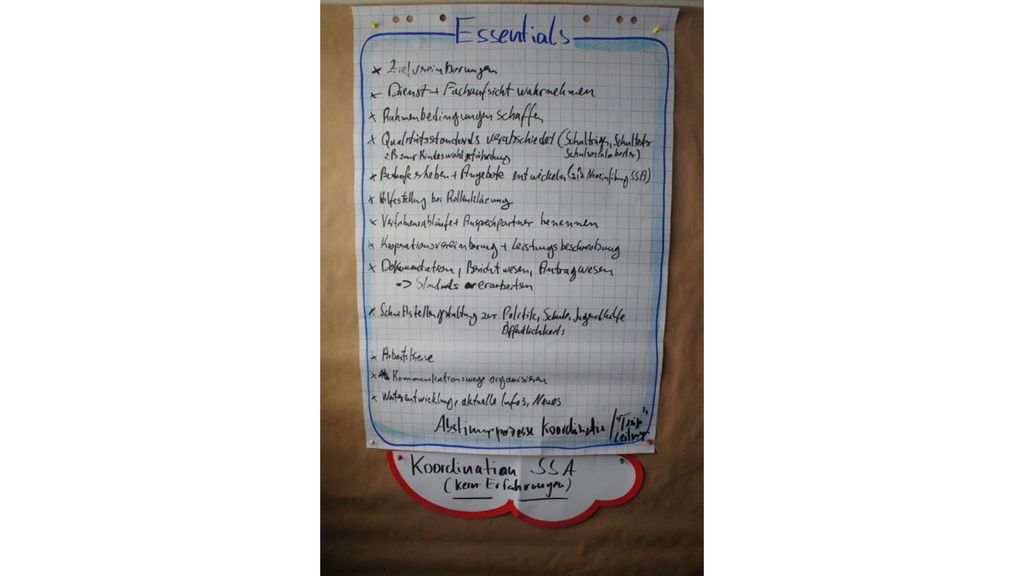 Essentials
x Zielvereinbarungen
x Dienst + Fachaufsicht wahrnehmen
x Rahmenbedingungen schaffen
x Qualitätsstandards verabschiedet (Schulträger, Schulleiter
zB zur Kindeswohlgefährdung Schulsozialarbeiter)
x Bedarfe erheben + Angebote entwickeln (z.B. Neueinführung SSA)
x Hilfestellung bei Rollenklärung
x Verfahrensabläufe + Ansprechpartner benennen
x Kooperationsvereinbarung + Leistungsbeschreibung
x Dokumentation, Berichtwesen, Antragwesen
=> Standards erarbeiten
x Schnittstellengestaltung zur Politik, Schule, Jugendhilfe
Öffentlichkeits
x Arbeitskreise
x Kommunikationswege organisieren
x Weiterentwicklung, aktuelle Infos, Neues
Abstimmprozesse Koordination / "Träger"
Leitung
Koordination SSA
(kein Erfahrungen)